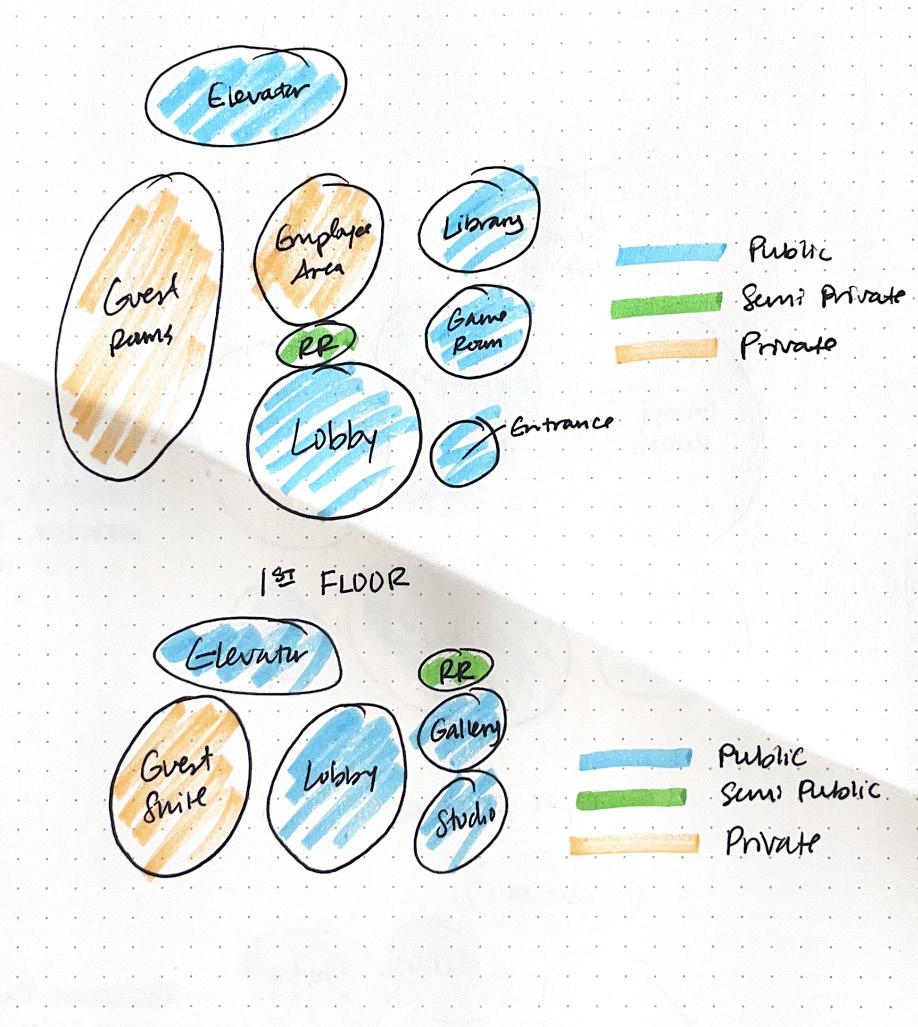 Elevator
Guest
Rooms
Employee
Area
RR
Lobby
Library
Game
Room
Entrance
Public
Semi Private
Private
1ST FLOOR
Elevator
Guest
Suite
Lobby
RR
Gallery
Studio
Public
Semi Public
Private